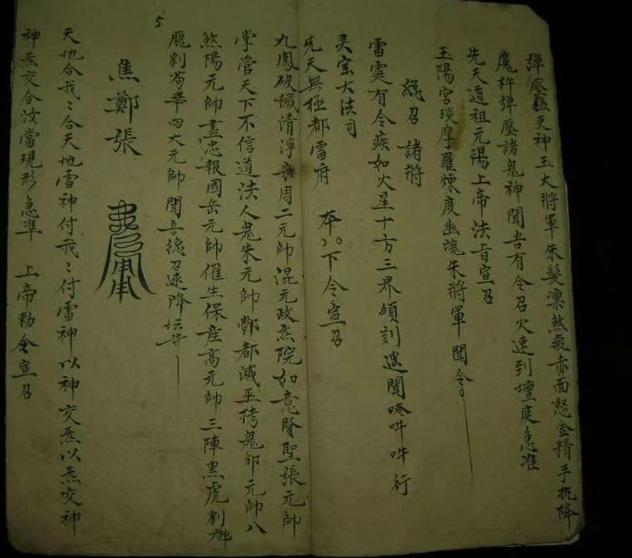 彈壓巍㚑神王大將軍朱髮凛煞氣赤面怒金精手執降
魔杵彈壓諸鬼神聞吾有令召火速到壇庭急准
先天道祖元陽上帝法旨宣召
玉陽宮琰摩羅煉度幽魂朱將軍聞令
總召諸將
雷霆有令疾如火星十方三界頃刻遙聞唵吽吽行
灵宝大法司
先天無極都雷府 本〻下令宣召
九鳳破穢清淨 周二元帥混元政炁院如意賢聖張元帥
掌管天下不信道法人鬼朱元帥酆都滅巫拷鬼 元帥八
煞陽元帥盡忠報國岳元帥催生保產高元帥三陣黑虎劉
龐劉苟畢四大元帥聞吾總召速降坛
焦鄭張
天地合我〻合天地雷神付我〻付雷神以神交炁以炁交神
神炁交合汝當現形急準 上帝勅令宣召
5